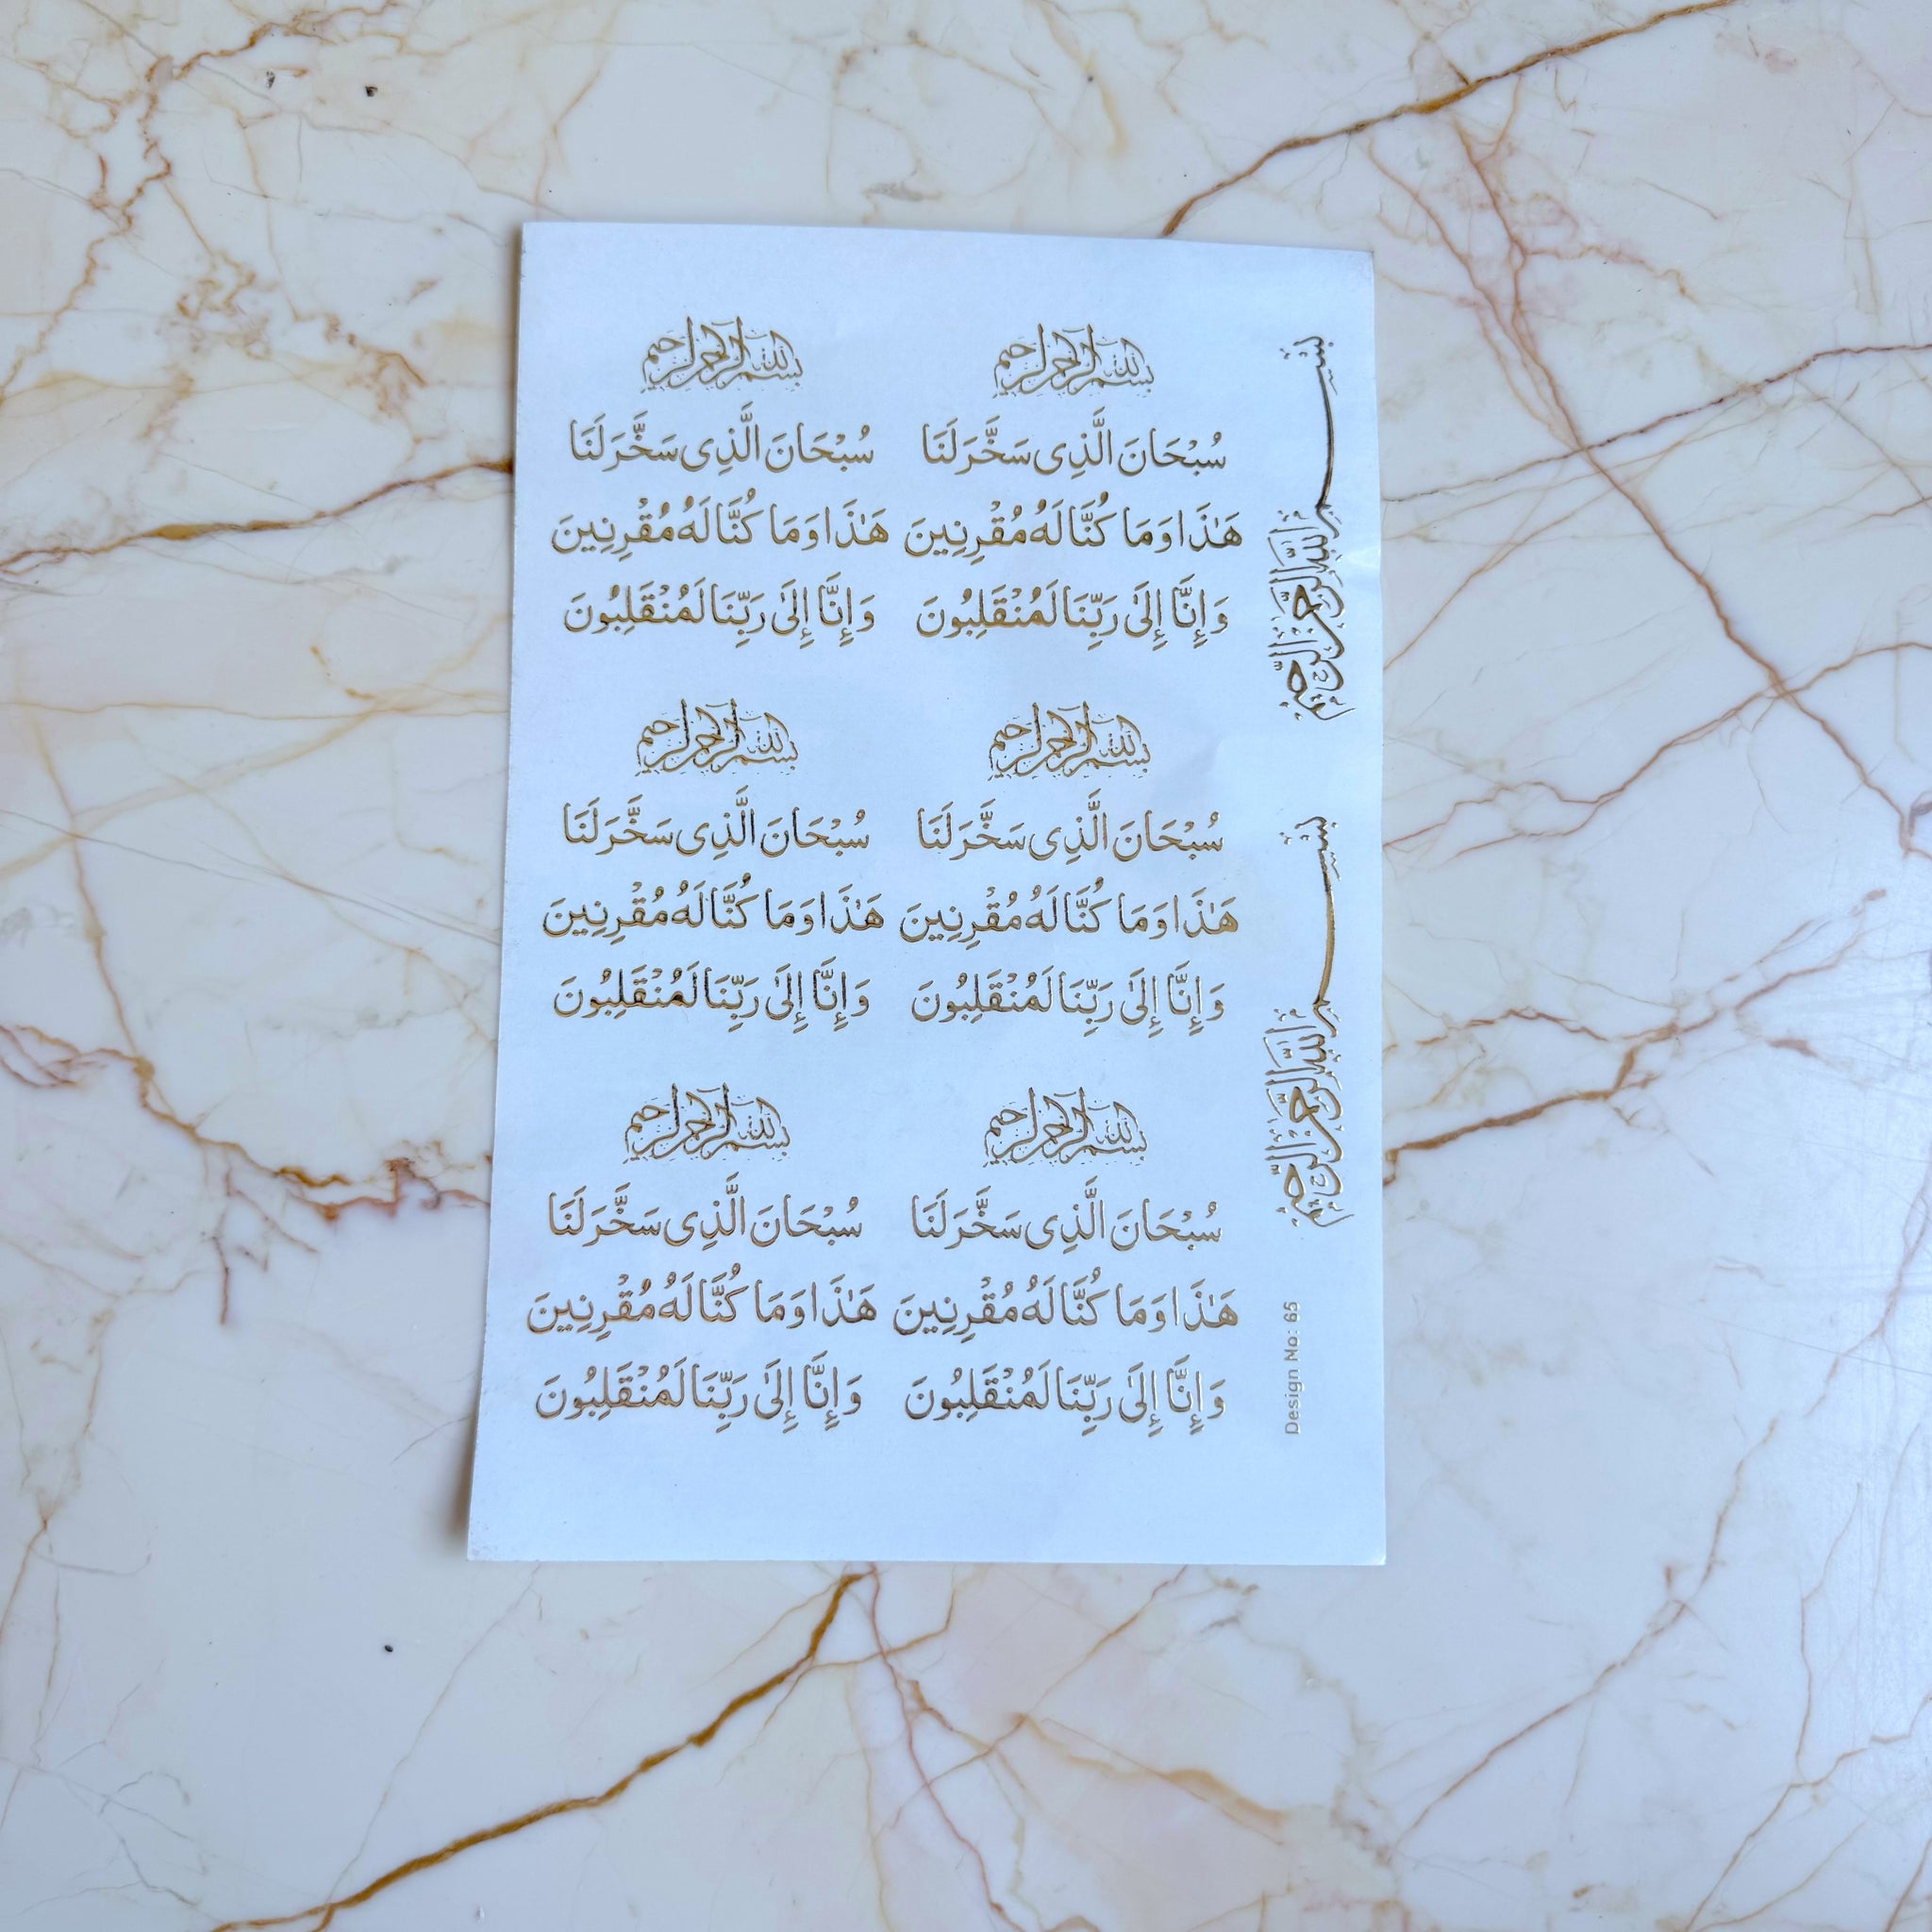 بسم الله الرحمن الرحيم
سُبْحَانَ الَّذِى سَخَّرَ لَنَا
هَٰذَا وَمَا كُنَّا لَهُ مُقْرِنِينَ
وَإِنَّا إِلَىٰ رَبِّنَا لَمُنْقَلِبُونَ
بسم الله الرحمن الرحيم
سُبْحَانَ الَّذِى سَخَّرَ لَنَا
هَٰذَا وَمَا كُنَّا لَهُ مُقْرِنِينَ
وَإِنَّا إِلَىٰ رَبِّنَا لَمُنْقَلِبُونَ
بسم الله الرحمن الرحيم
سُبْحَانَ الَّذِى سَخَّرَ لَنَا
هَٰذَا وَمَا كُنَّا لَهُ مُقْرِنِينَ
وَإِنَّا إِلَىٰ رَبِّنَا لَمُنْقَلِبُونَ
بسم الله الرحمن الرحيم
سُبْحَانَ الَّذِى سَخَّرَ لَنَا
هَٰذَا وَمَا كُنَّا لَهُ مُقْرِنِينَ
وَإِنَّا إِلَىٰ رَبِّنَا لَمُنْقَلِبُونَ
بسم الله الرحمن الرحيم
سُبْحَانَ الَّذِى سَخَّرَ لَنَا
هَٰذَا وَمَا كُنَّا لَهُ مُقْرِنِينَ
وَإِنَّا إِلَىٰ رَبِّنَا لَمُنْقَلِبُونَ
بسم الله الرحمن الرحيم
سُبْحَانَ الَّذِى سَخَّرَ لَنَا
هَٰذَا وَمَا كُنَّا لَهُ مُقْرِنِينَ
وَإِنَّا إِلَىٰ رَبِّنَا لَمُنْقَلِبُونَ
بسم الله الرحمن الرحيم
بسم الله الرحمن الرحيم
Design No: 65